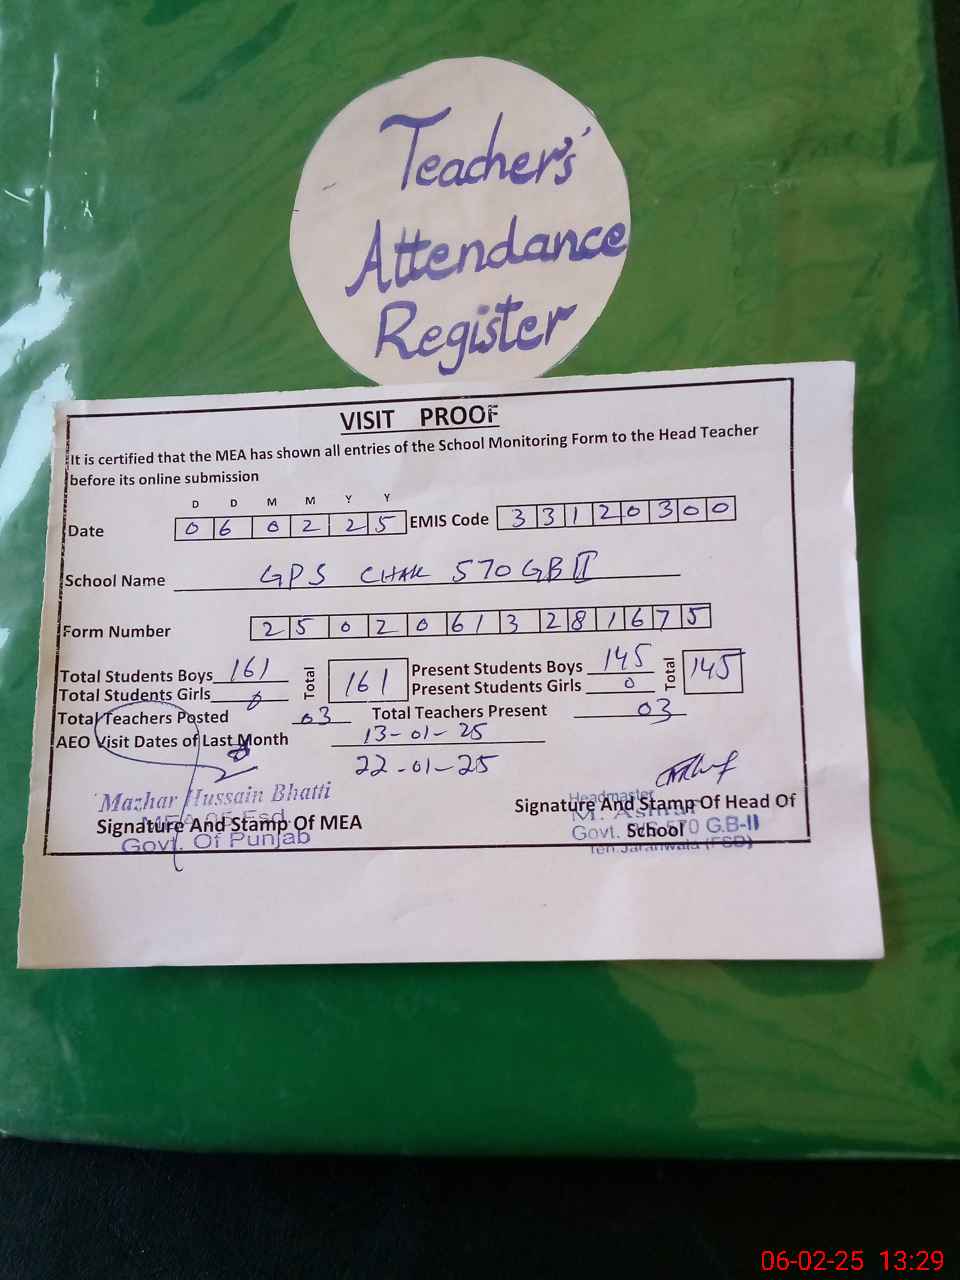 Teacher's
Attendance
Register
VISIT PROOF
It is certified that the MEA has shown all entries of the School Monitoring Form to the Head Teacher
before its online submission
D D M M Y Y
Date 0 6 0 2 2 5 EMIS Code 3 3 1 2 0 3 0 0
School Name GPS CHAK 570 GB II
Form Number 2 5 0 2 0 6 1 3 2 8 1 6 7 5
Total Students Boys 161 Total 161 Present Students Boys 145 Total 145
Total Students Girls 0 Present Students Girls 0
Total Teachers Posted 03 Total Teachers Present 03
AEO Visit Dates of Last Month 13-01-25
22-01-25
Mazhar Hussain Bhatti
Signature And Stamp Of MEA
Govt. Of Punjab
Headmaster
Signature And Stamp Of Head Of
M. Ashraf
School
Govt. 570 G.B-II
Teh. Jaranwala (FSD)
06-02-25 13:29